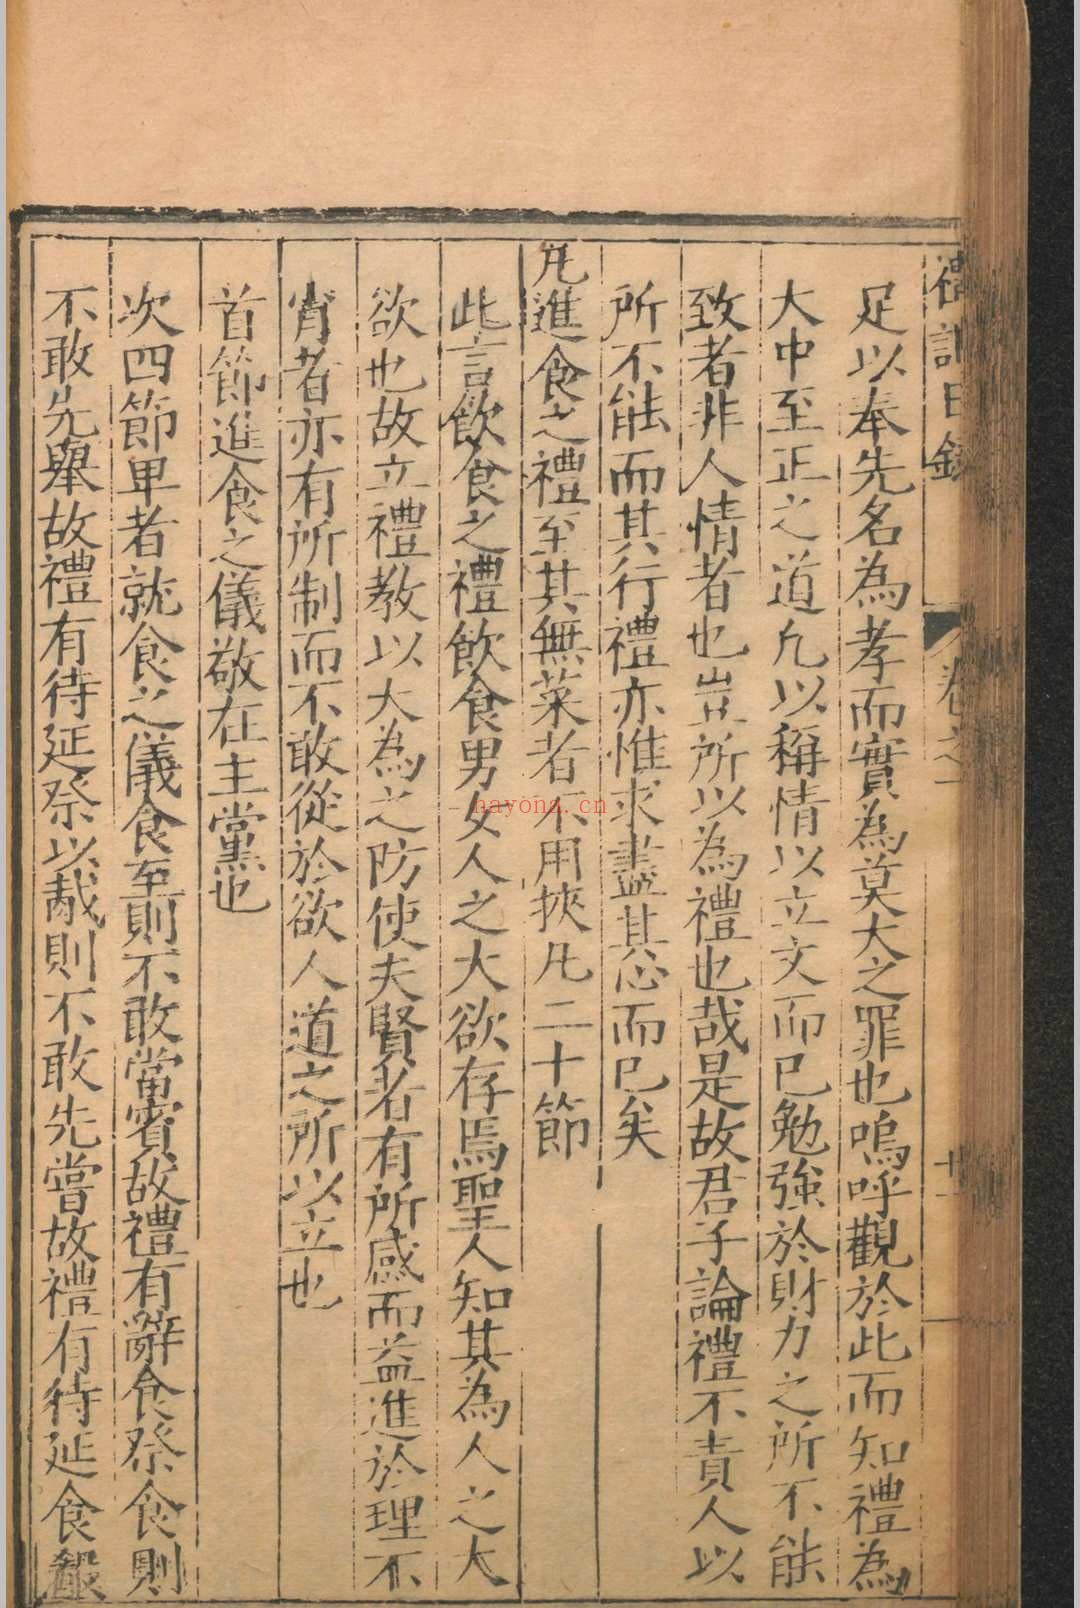 禮記日錄 卷之一 廿一
足以奉先名為孝而實為莫大之罪也嗚呼觀於此而知禮為
大中至正之道凡以稱情以立文而已勉強於財力之所不能
致者非人情者也豈所以為禮也哉是故君子論禮不責人以
所不能而其行禮亦惟求盡其心而已矣
凡進食之禮至其無菜者不用挾凡二十節
此言飲食之禮飲食男女人之大欲存焉聖人知其為人之大
欲也故立禮教以大為之防使夫賢者有所感而益進於理不
肖者亦有所制而不敢從於欲人道之所以立也
首節進食之儀敬在主黨也
次四節卑者就食之儀食至則不敢當賓故禮有辭食祭食則
不敢先舉故禮有待延祭以胾則不敢先嘗故禮有待延食殽
nayona.cn